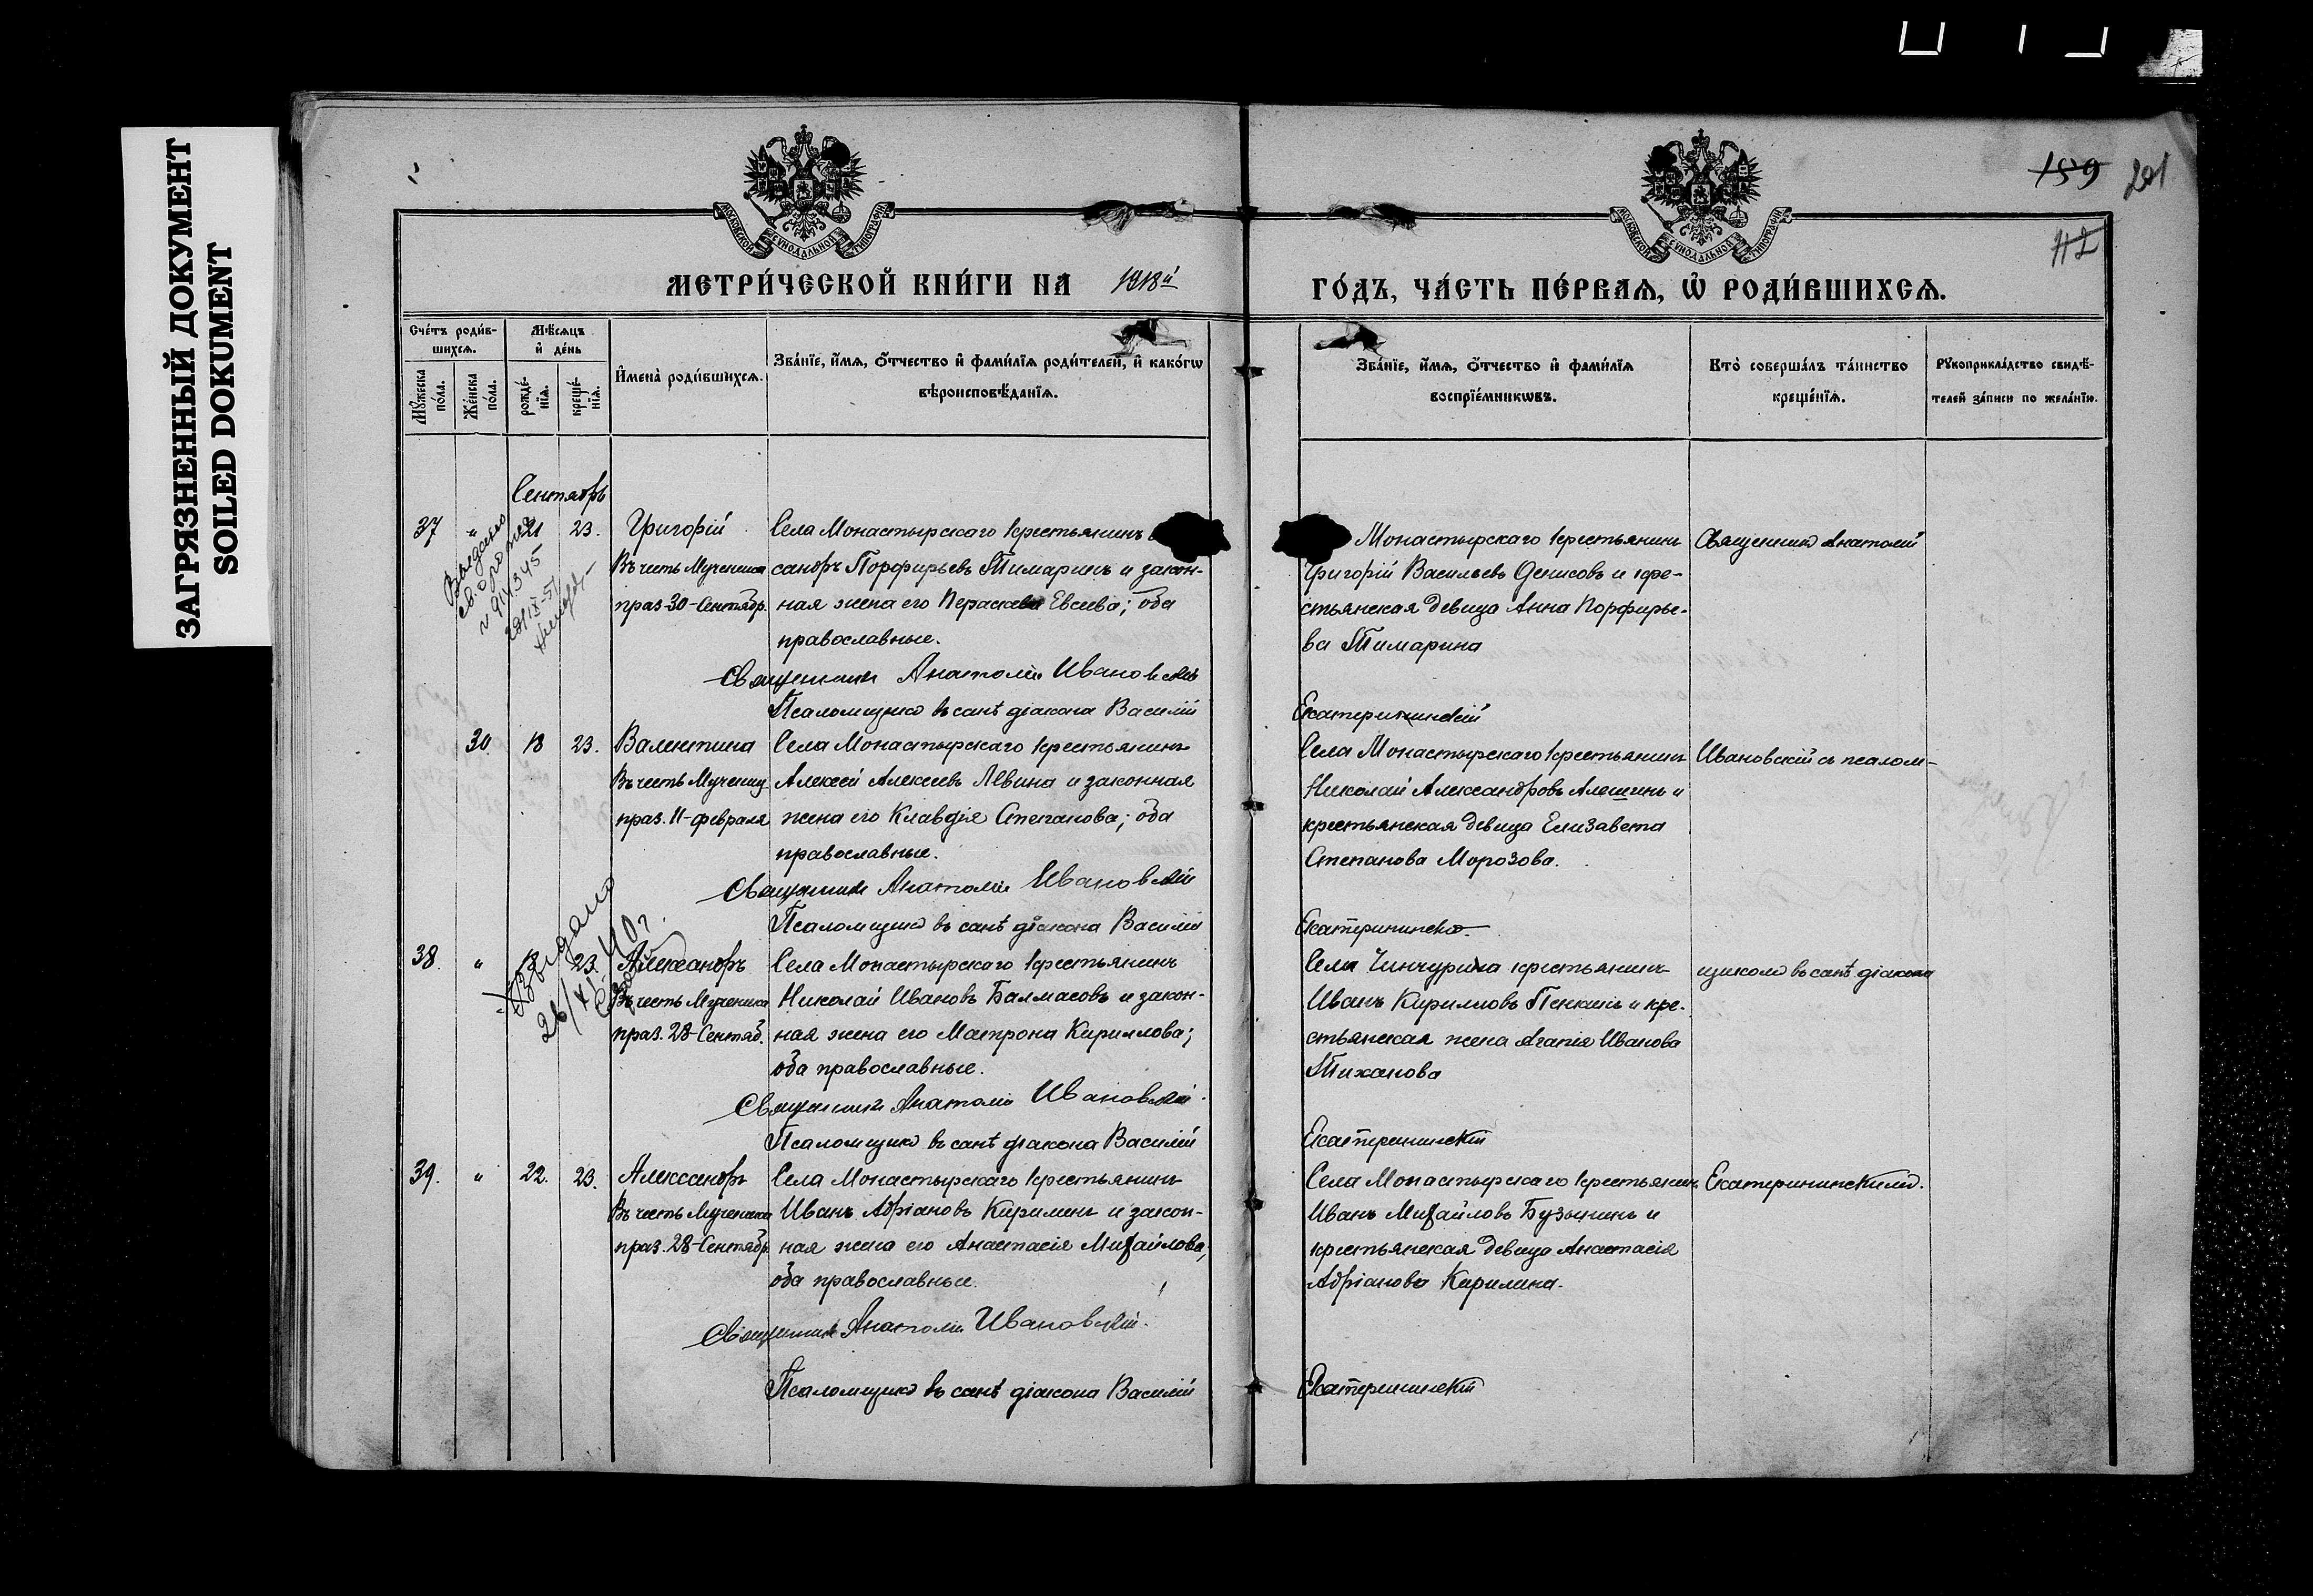 ЗАГРЯЗНЕННЫЙ ДОКУМЕНТ
SOILED DOKUMENT
189 201
112
МОСКОВСКОЙ СѴНОДАЛЬНОЙ ТИПОГРАФІИ
МОСКОВСКОЙ СѴНОДАЛЬНОЙ ТИПОГРАФІИ
МЕТРИ́ЧЕСКОЙ КНИ́ГИ НА 1918й
ГО́ДЪ, ЧА́СТЬ ПЕ́РВАѦ, Ѽ РОДИ́ВШИХСѦ.
Сче́тъ роди́в-
шихсѧ.
Мꙋ́жеска по́ла.
Же́нска по́ла.
Мѣ́сѧцъ
и҆ де́нь
рожде́-
нїѧ.
креще́-
нїѧ.
И҆мена̀ роди́вшихсѧ.
Зва́нїе, и҆́мѧ, ѻ҆́тчество и҆ фами́лїѧ роди́телей, и҆ како́гѡ
вѣроисповѣ́данїѧ.
Зва́нїе, и҆́мѧ, ѻ҆́тчество и҆ фами́лїѧ
воспрїе́мникѡвъ.
Кто̀ соверша́лъ та́инство
креще́нїѧ.
Рꙋкоприкла́дство свидѣ́-
телей за́писи по жела́нїю.
Сентябрь
37 " 21 23. Григорій
Въ честь Мученика
праз. 30-Сентябр.
Села Монастырскаго крестьянинъ
сандръ Порфирьевъ Тимаринъ и закон-
ная жена его Пераскева Евсеева; оба
православные.
Монастырскаго крестьянин
Григорій Васильевъ Денисовъ и кре-
стьянская девица Анна Порфирье-
ва Тимарина
Священник Анатолій
Выдано
Священник Анатолій Ивановскій
Псаломщик въ санѣ діакона Василій Екатерининскій
30. 18 23. Валентина
Въ честь Мучениц
праз. 11-февраля
Села Монастырскаго крестьянинъ
Алексей Алексеевъ Левина и законная
жена его Клавдія Степанова; оба
православные.
Села Монастырскаго крестьянин
Николай Александровъ Алешинъ и
крестьянская девица Елизавета
Степанова Морозова.
Ивановскій съ псалом-
Священник Анатолій Ивановскій
Псаломщик въ санѣ діакона Василій Екатерининскій
38. " 23. Александръ
Въ честь Мученика
праз. 28-Сентяб.
Выдано
26/XI-40г.
Села Монастырскаго крестьянинъ
Николай Ивановъ Балмасовъ и закон-
ная жена его Матрона Кириллова;
оба православные.
Села Чинчурина крестьянинъ
Иванъ Кирилловъ Пенкинъ и кре-
стьянская жена Агапія Иванова
Тиханова
щиком въ санѣ діакона
Священник Анатолій Ивановскій
Псаломщик въ санѣ діакона Василій Екатерининскій
39. " 22. 23. Александръ
Въ честь Мученика
праз. 28-Сентябр.
Села Монастырскаго крестьянинъ
Иванъ Адріановъ Кирилинъ и закон-
ная жена его Анастасія Михайлова;
оба православные.
Села Монастырскаго крестьянин
Иванъ Михайловъ Бузынинъ и
крестьянская девица Анастасія
Адріанова Кирилина.
Екатерининским.
Священник Анатолій Ивановскій
Псаломщик въ санѣ діакона Василій Екатерининскій